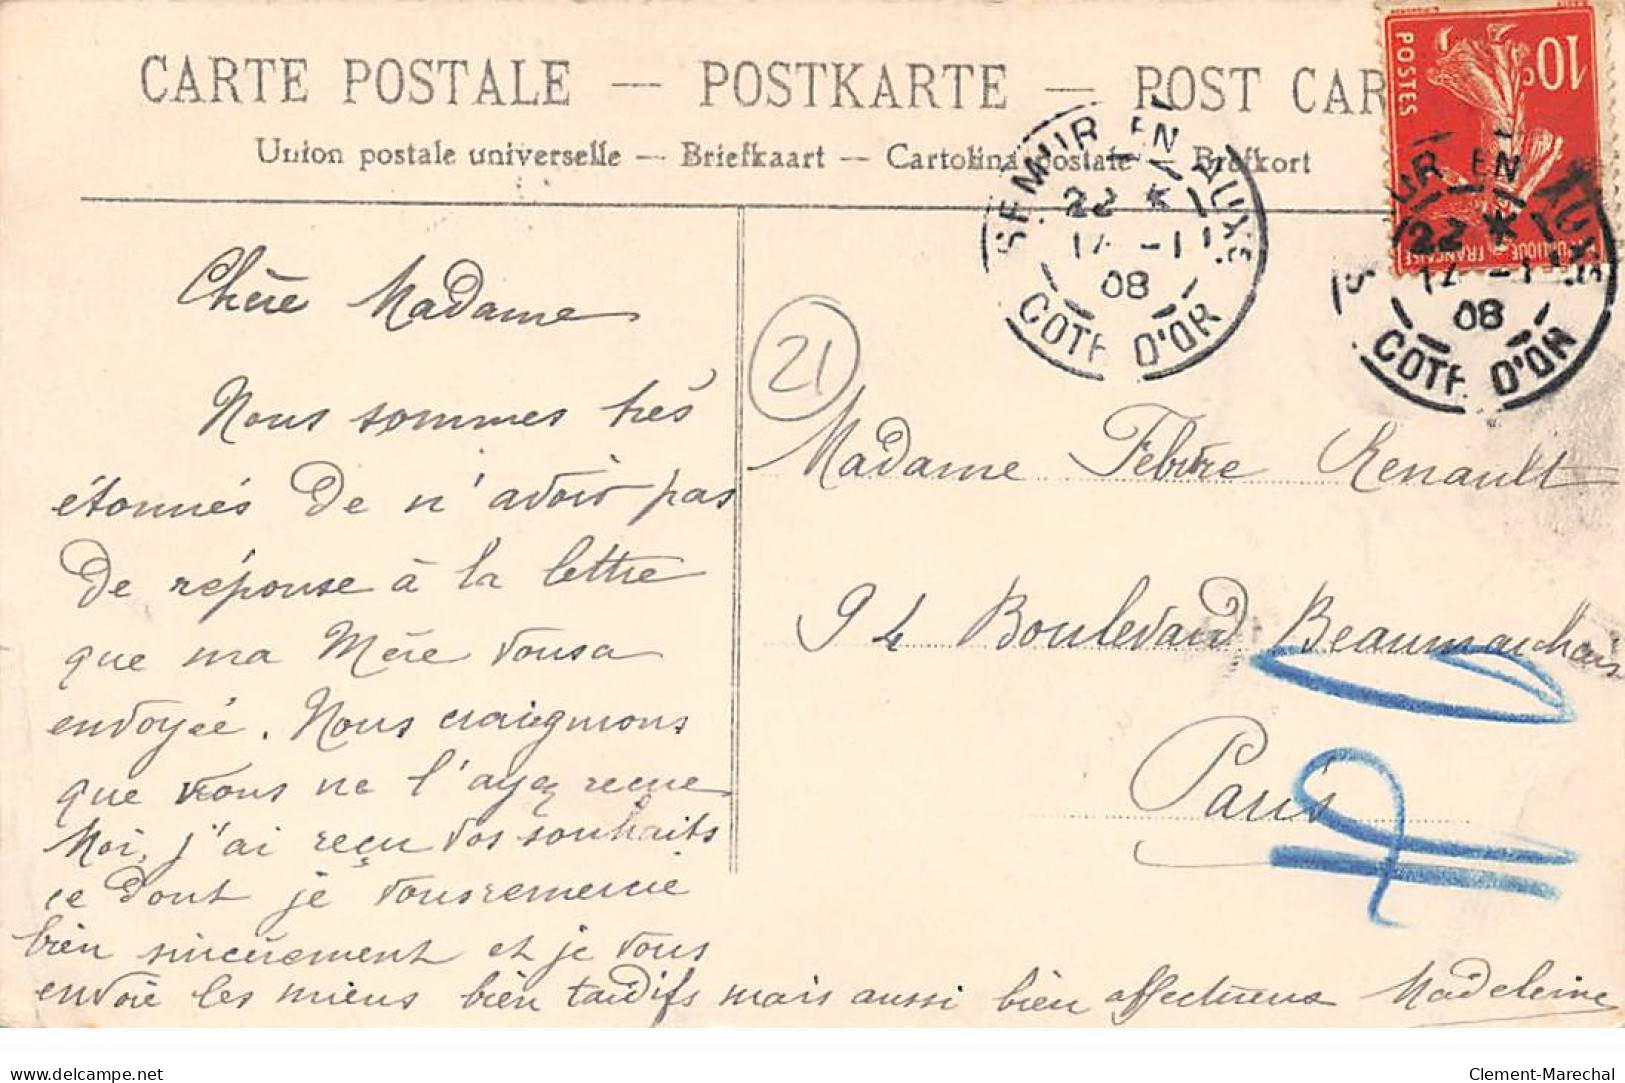 CARTE POSTALE — POSTKARTE — POST CAR
Union postale universelle — Briefkaart — Cartolina postale — Brefkort
10c
POSTES
FRANÇAISE
SEMUR EN AUXS
22 *
08
COTE D'OR
UR EN AUXS
22 *
08
COTE D'OR
21
Chère Madame
Nous sommes très
étonnés de n'avoir pas
de réponse à la lettre
que ma Mère vous a
envoyée. Nous craignons
que vous ne l'ayez reçue
Moi, j'ai reçu vos souhaits
ce dont je vous remercie
bien sincèrement et je vous
envoie les miens bien tardifs mais aussi bien affectueux Madeleine
Madame Febvre Renault
94 Boulevard Beaumarchais
Paris
delcampe.net
Clement-Marechal